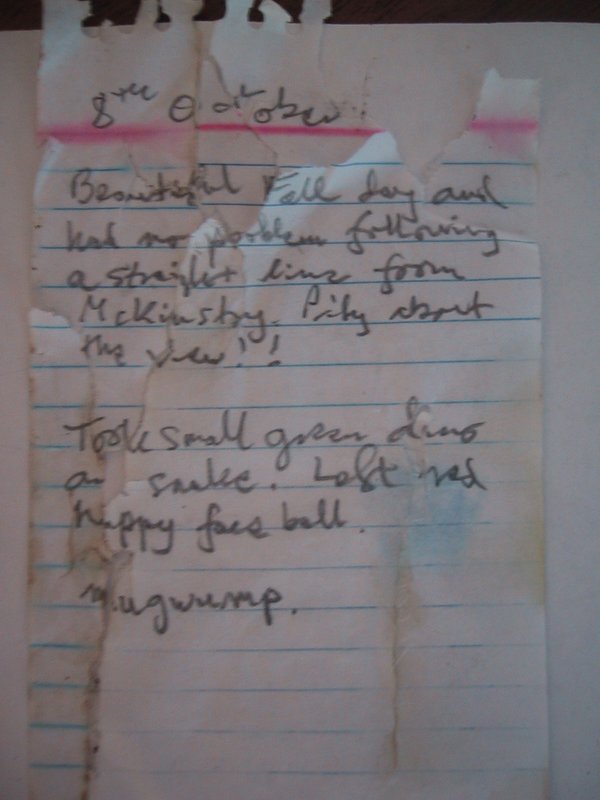 8TH October
Beautiful Fall day and
had no problem following
a straight line from
McKinstry. Pity about
the view!!
Took small green dino
an snake. Left red
happy face ball.
mugwump.